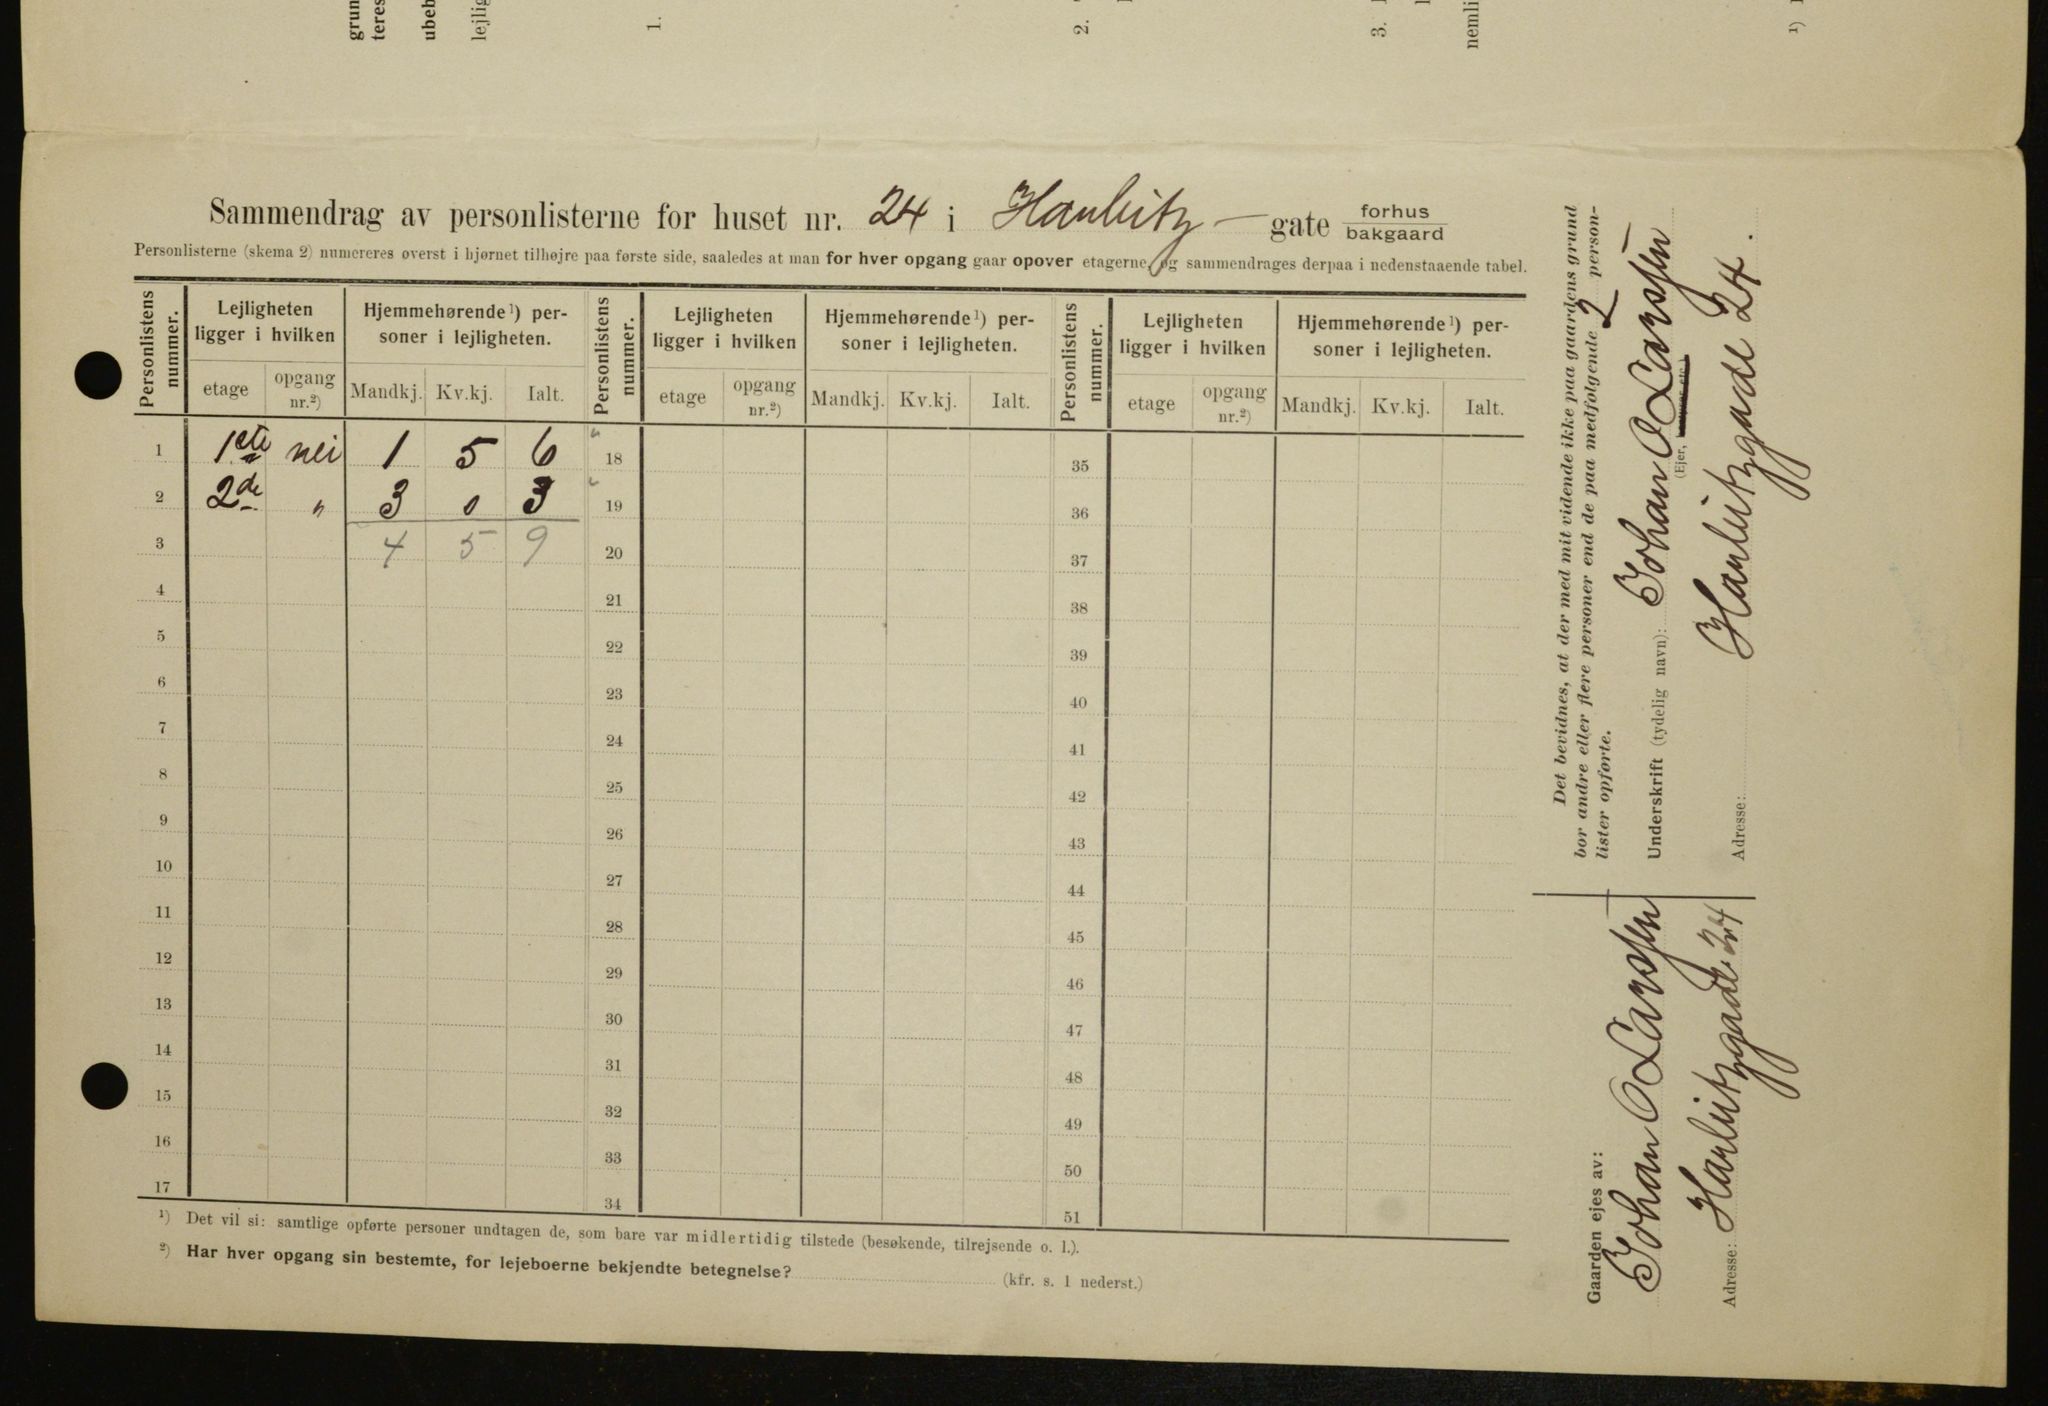 grun
teres
ubeb
lejlig
1.
2.
3.
nemli
1)
Sammendrag av personlisterne for huset nr. 24 i Haubitz — gate forhus
bakgaard
Personlisterne (skema 2) numereres øverst i hjørnet tilhøjre paa første side, saaledes at man for hver opgang gaar opover etagerne, og sammendrages derpaa i nedenstaaende tabel.
Personlistens nummer. Lejligheten ligger i hvilken Hjemmehørende 1) personer i lejligheten. Personlistens nummer. Lejligheten ligger i hvilken Hjemmehørende 1) personer i lejligheten. Personlistens nummer. Lejligheten ligger i hvilken Hjemmehørende 1) personer i lejligheten.
etage opgang nr.2) Mandkj. Kv.kj. Ialt. etage opgang nr.2) Mandkj. Kv.kj. Ialt. etage opgang nr.2) Mandkj. Kv.kj. Ialt.
1 1ste nei 1 5 6 18 35
2 2de " 3 0 3 19 36
3 4 5 9 20 37
4 21 38
5 22 39
6 23 40
7 24 41
8 25 42
9 26 43
10 27 44
11 28 45
12 29 46
13 30 47
14 31 48
15 32 49
16 33 50
17 34 51
1) Det vil si: samtlige opførte personer undtagen de, som bare var midlertidig tilstede (besøkende, tilrejsende o. l.).
2) Har hver opgang sin bestemte, for lejeboerne bekjendte betegnelse? (kfr. s. 1 nederst.)
Det bevidnes, at der med mit vidende ikke paa gaardens grund
bor andre eller flere personer end de paa medfølgende 2 person-
lister opførte.
Underskrift (tydelig navn): Johan O Larssen
(Ejer,
Adresse: Haubitzgade 24.
Gaarden ejes av:
Johan O Larssen
Adresse: Haubitzgade 24